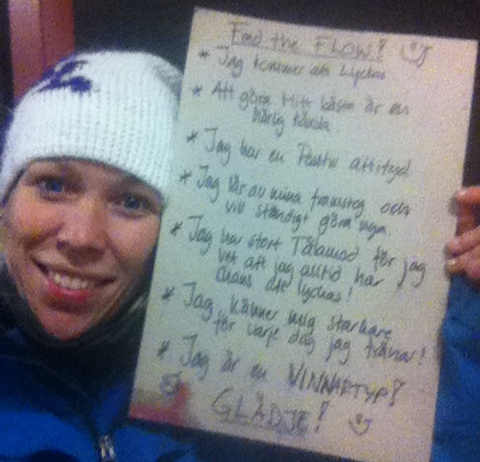 Find the FLOW!
* Jag kommer att lyckas
* Att göra mitt bästa är en
härlig känsla.
* Jag har en Positiv attityd!
* Jag lär av mina framsteg och
vill ständigt göra nya.
* Jag har stort Tålamod för jag
vet att jag alltid har
chans att lyckas!
* Jag känner mig starkare
för varje dag jag tränar!
* Jag är en VINNARTYP!
GLÄDJE!